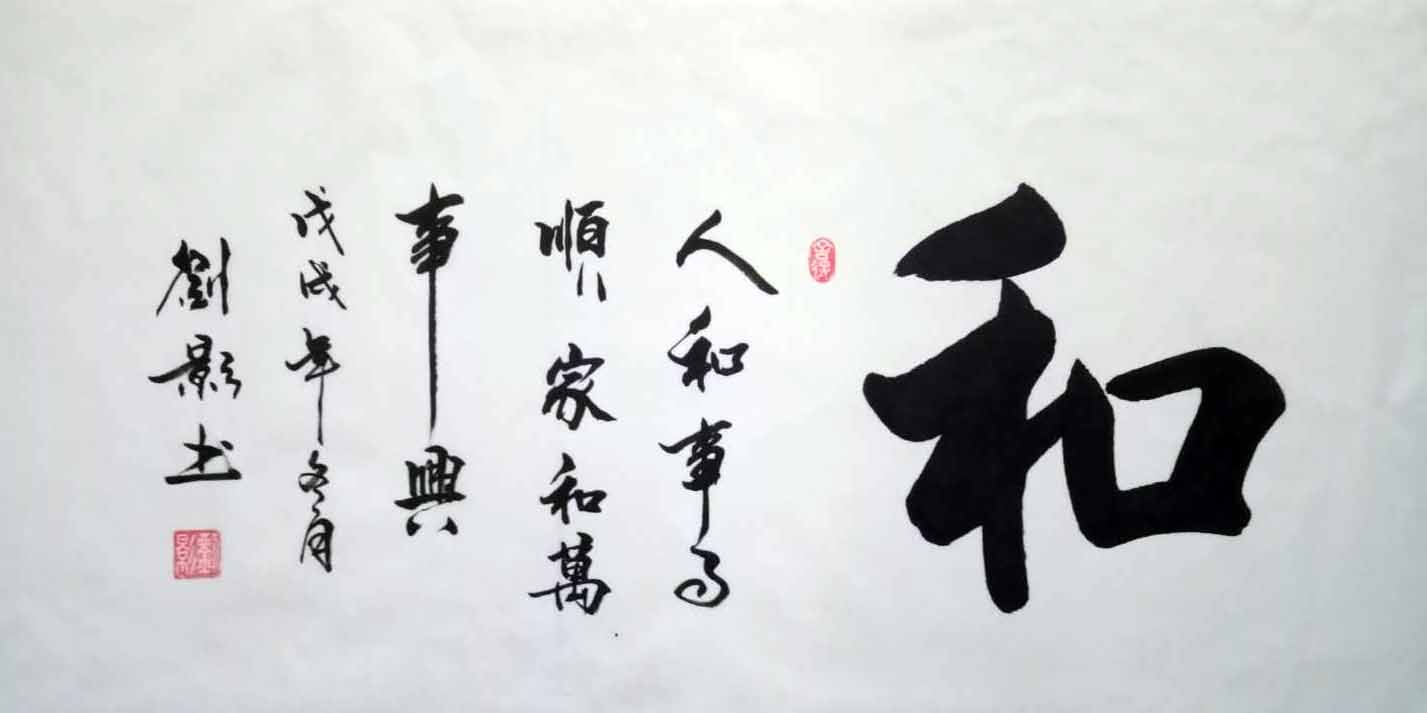 和
人和事事
順家和萬
事興
戊戌年冬月
劉影书
劉影